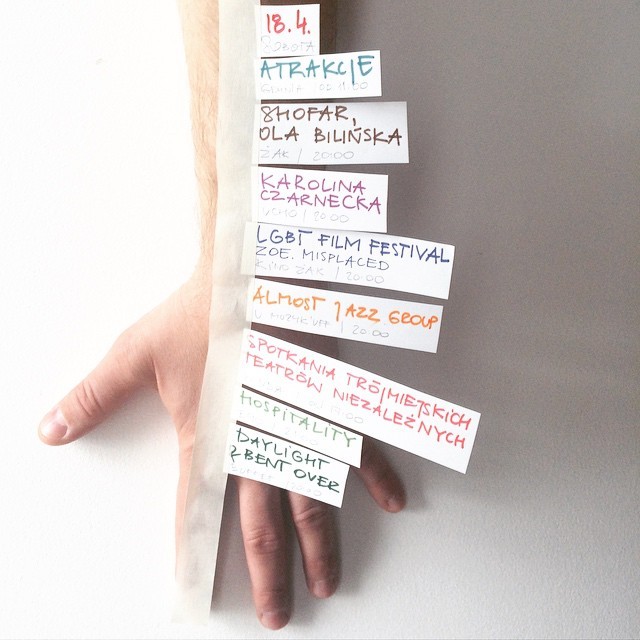 18.4.
SOBOTA
ATRAKCJE
SHOFAR,
OLA BILIŃSKA
ŻAK | 20:00
KAROLINA
CZARNECKA
UCHO | 20:00
LGBT FILM FESTIVAL
ZOE. MISPLACED
KINO ŻAK | 20:00
ALMOST JAZZ GROUP
20:00
SPOTKANIA TRÓJMIEJSKICH
TEATRÓW NIEZALEŻNYCH
HOSPITALITY
DAYLIGHT
& BENT OVER